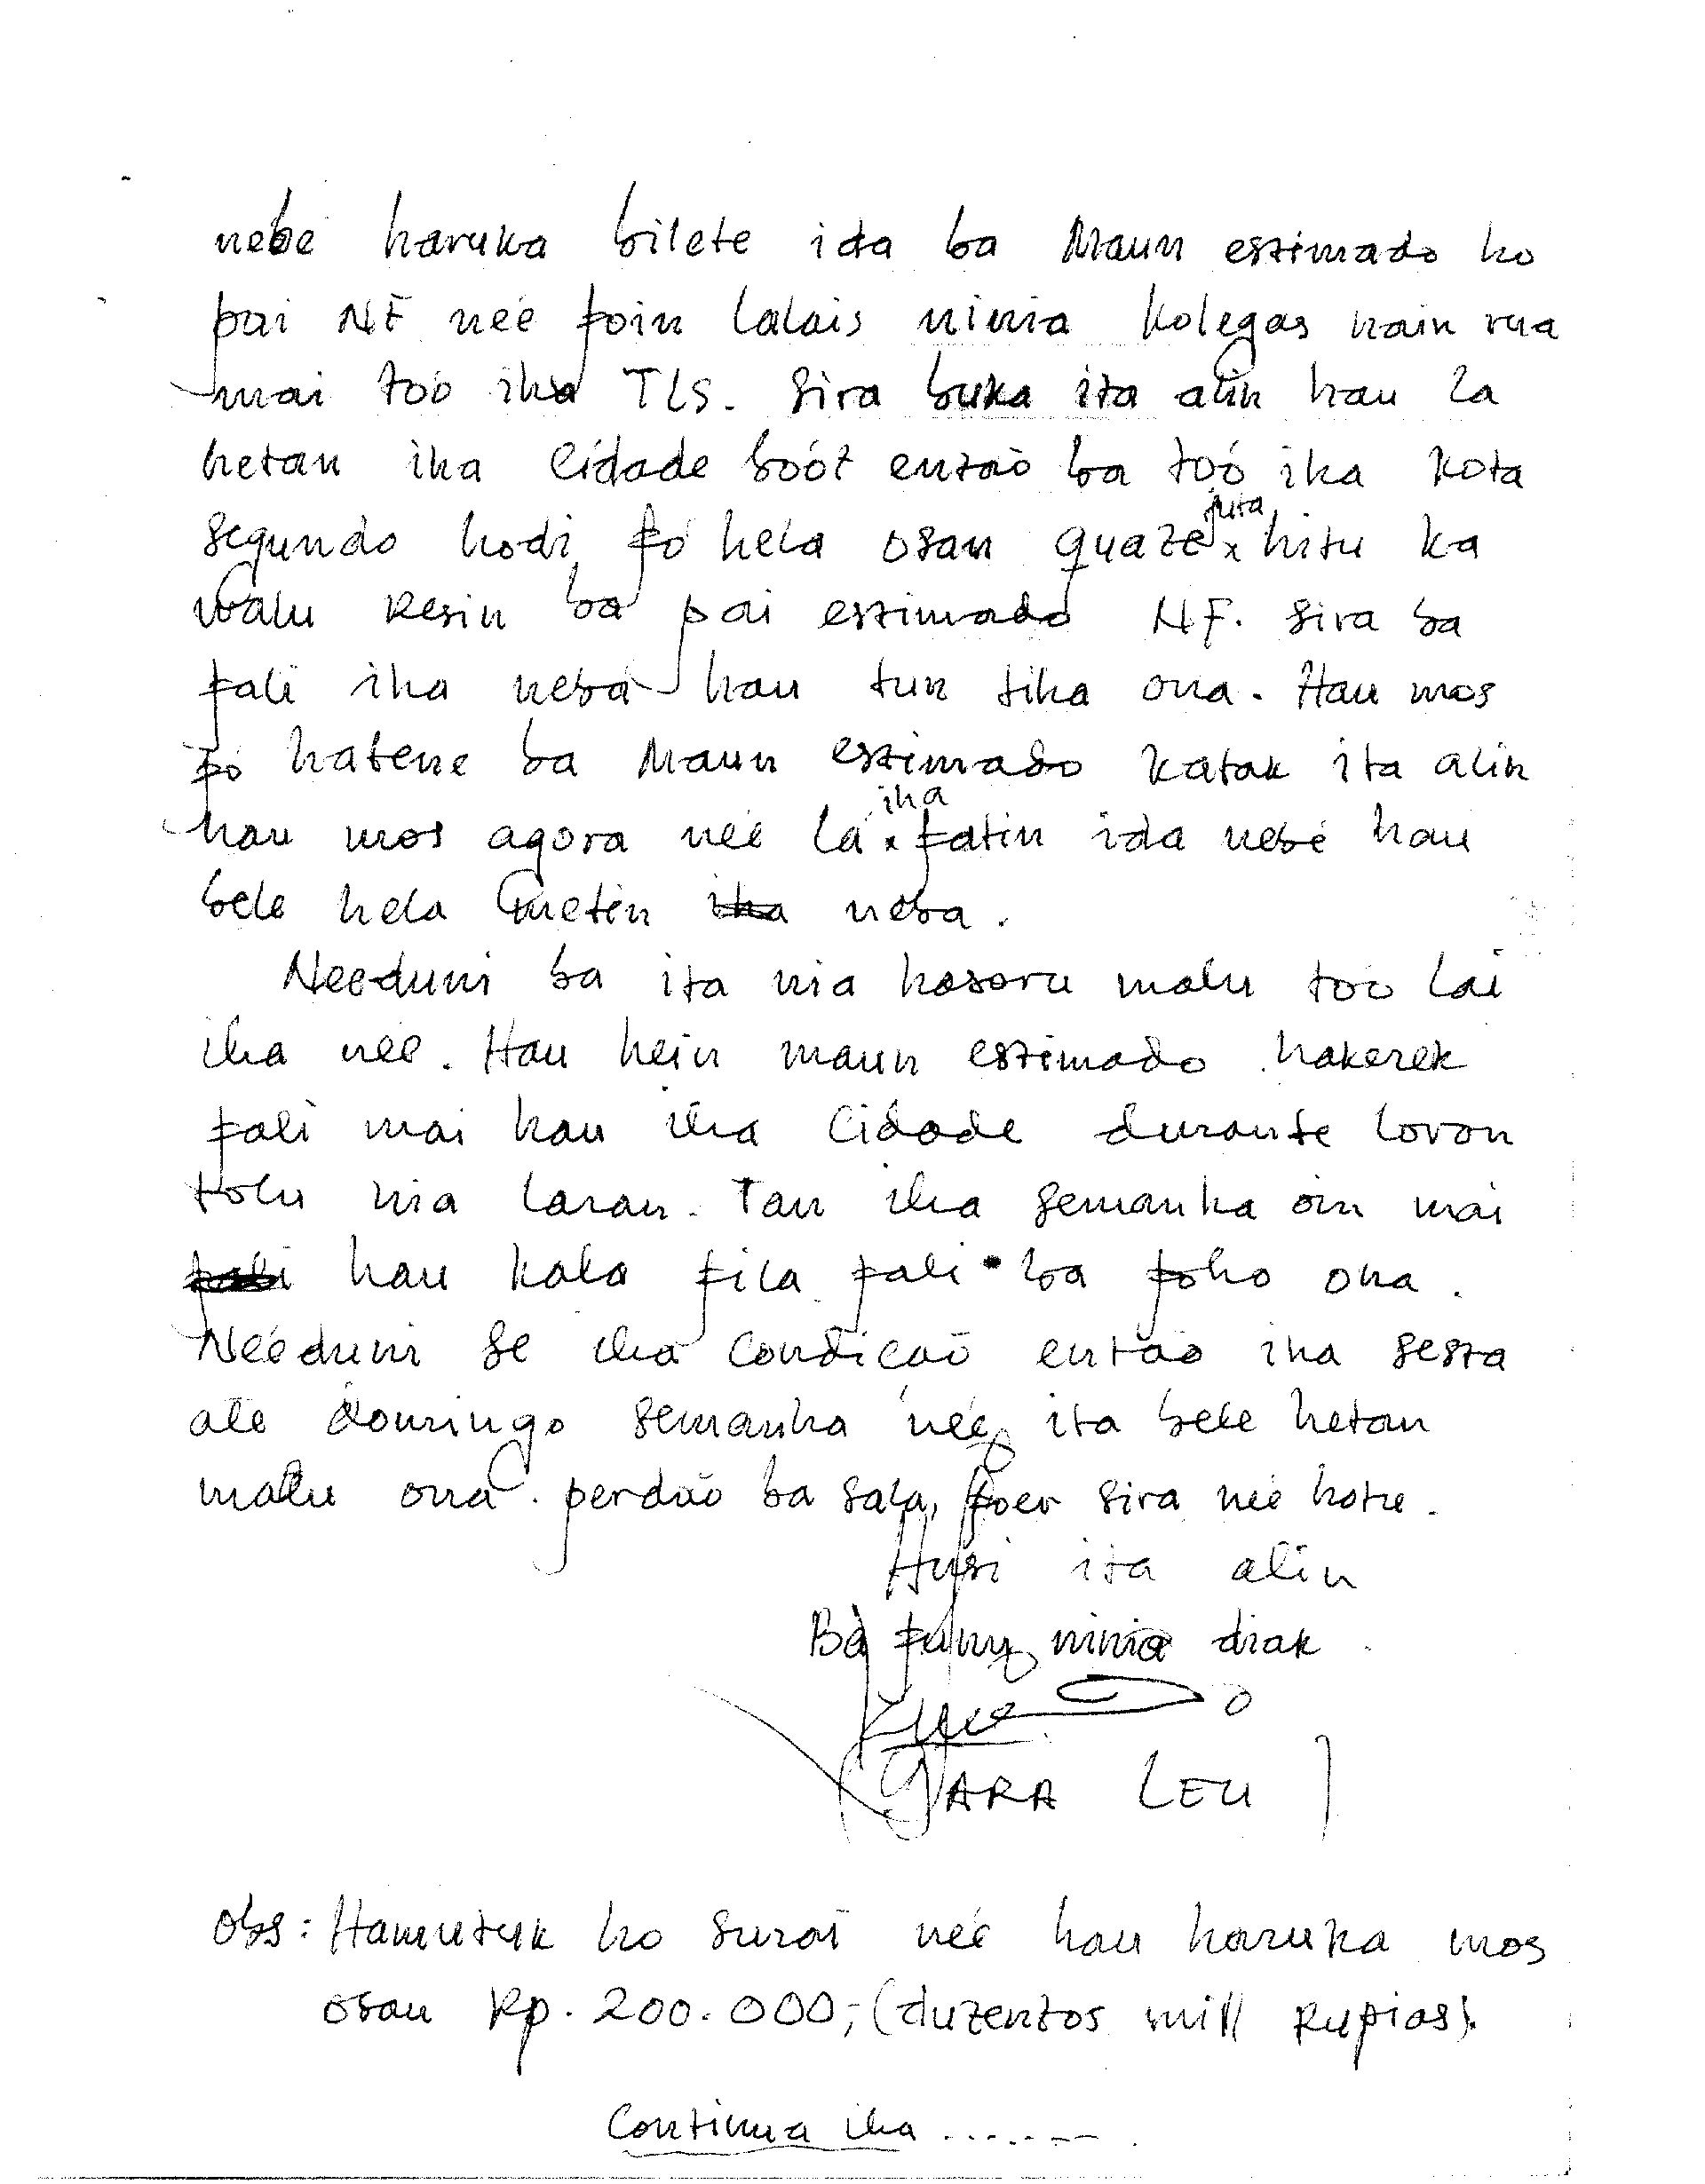 nebé haruka bilete ida ba Maun estimado ho
pai NF neé foin lalais ninia kolegas hain rua
mai toó iha TLS. Sira buka ita alin hau la
hetan iha Cidade boót então ba toó iha kota
segundo hodi fó hela osan quaze juta hitu ka
walu resin ba pai estimado NF. Sira ba
fali iha nebá hau tun tiha ona. Hau mos
fó hatene ba Maun estimado katak ita alin
hau mos agora neé la iha fatin ida nebé hau
bele hela metin neba.
Needuni ba ita nia hasoru malu toó lai
iha neé. Hau hein maun estimado hakerek
fali mai hau iha Cidade durante loron
tolu nia laran. Tan iha semanha oin mai
hau kala fila fali ba foho ona.
Neéduni se iha condicaõ então iha sesta
até domingo semanha neé ita bele hetan
malu ona. perdão ba sala, foer sira neé hotu.
Husi ita alin
Bá funu ninia diak
(GARA LEU)
Obs: Hamutuk ho surat neé hau haruka mos
osan Rp. 200.000,- (duzentos mill Rupias).
Continua iha .......